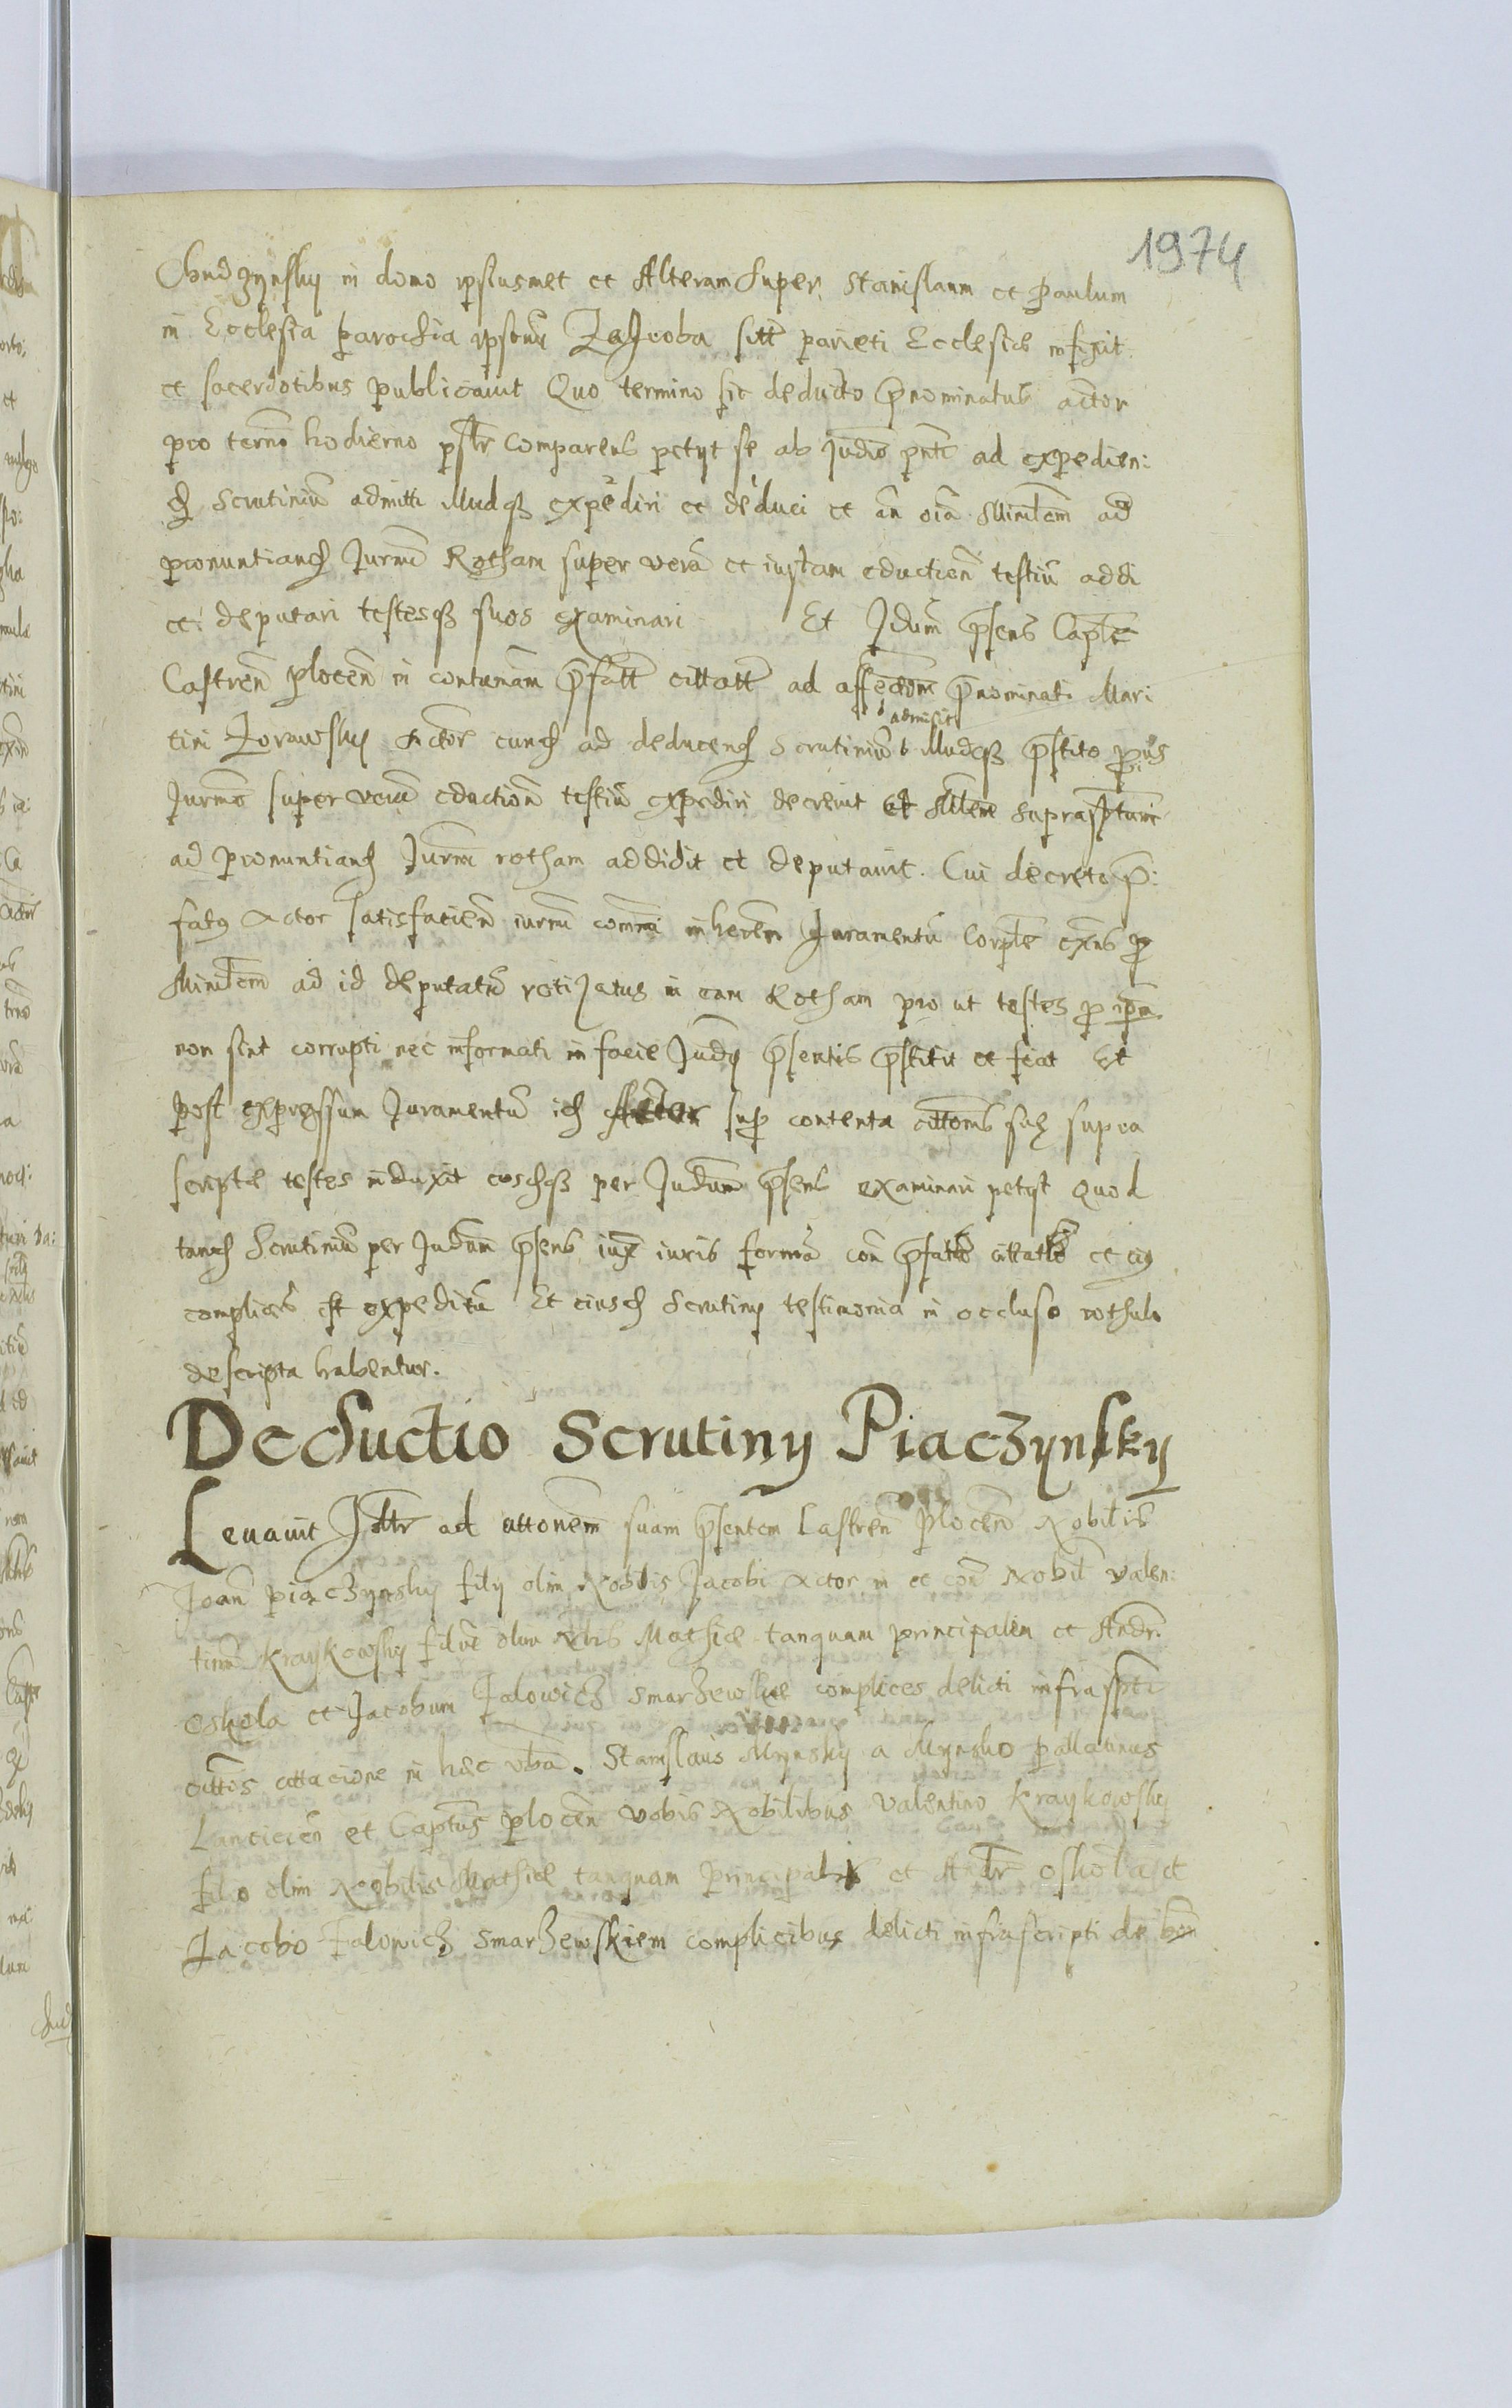 1974
Chudzynsky in domo ipsiusmet et Alteram Super Stanislaum et Paulum
in Ecclesia parochia ipsorũ Zagroba sitt parieti Ecclesiæ infixit
et sacerdotibus publicavit Quo termino sic deducto p̃nominatus actor
pro termõ hodierno pstr Comparens petyt se ab Judiõ pñti ad expedien:
d̃ Scrutiniũ admitti illudqȝ expediri et deduci et añ oĩa Minĩlem ad
pronuntiand̃ Jurmt̃ Rotham super verã et iustam eductionẽ testiũ addi
et deputari testesqȝ suos examinari Et Jdũm p̃sens Capt̃le
Castreñ Plocen̄ in contumãm p̃fatt̃ cittatt̃ ad affectõm p̃nominati Mari
tini Zorawsky Actorẽ eund̃ ad deducend̃ Scrutiniũ admisit illudqȝ p̃stito prius
Jurmõ super verã eductionẽ testiũ expediri decrevit et Mĩlem suprasp̃tum
ad pronuntiand̃ Jurmt̃ rotham addidit et deputavit. Cui decreto p̃:
fatus Actor satisfaciens iurmt̃ inherẽn Juramentũ Corpt̃le p̱
Minĩlem ad id deputatũ rotizatus in eam Rotham pro ut testes p̱ ip̃m
non sint corrupti nec informati in facie Judÿ p̃sentis p̃stitit et fecit Et
post expressum Juramentũ id̃ Actor sup̱ contenta cittõnis suæ supra
scriptæ testes induxit eosdqȝ per Judũm p̃sens examinari petyt Quod
tand̃ Scrutiniũ per Judũm p̃sens iux̃ iuris formã coñ p̃fatos cittatos et eius
complices est expeditũ Et eiusd̃ Scrutinÿ testimonia in occluso rothulo
descripta habentur.
Deductio Scrutinÿ Piaczynsky
Levavit Jttr̃ ad cittonem suam p̃sentem Castreñ Plocen̄ Nobilis
Joañ Piaczynsky filÿ olim Nobilis Jacobi Actor in et coñ Nobil̃ Valen:
tinũ Kraykowsky filiũ olim Nbis Mathiæ tanquam principalem et Andr̃.
oskola et Jacobum Falowicz Smarzewskie complices delicti infrasp̃ti
cittõs cittacione in hæc vb̃a. Stanislaus Mynsky a Mynsko pallatinus
Lancicieñ et Captũs plocen̄ vobis Nobilibus Valentino Kraykowsky
filio olim Nobilis Mathiæ tanquam principali et Andr̃ oskola et
Jacobo Falowicz Smarzewskiem complicibus delicti infrascripti de boñ